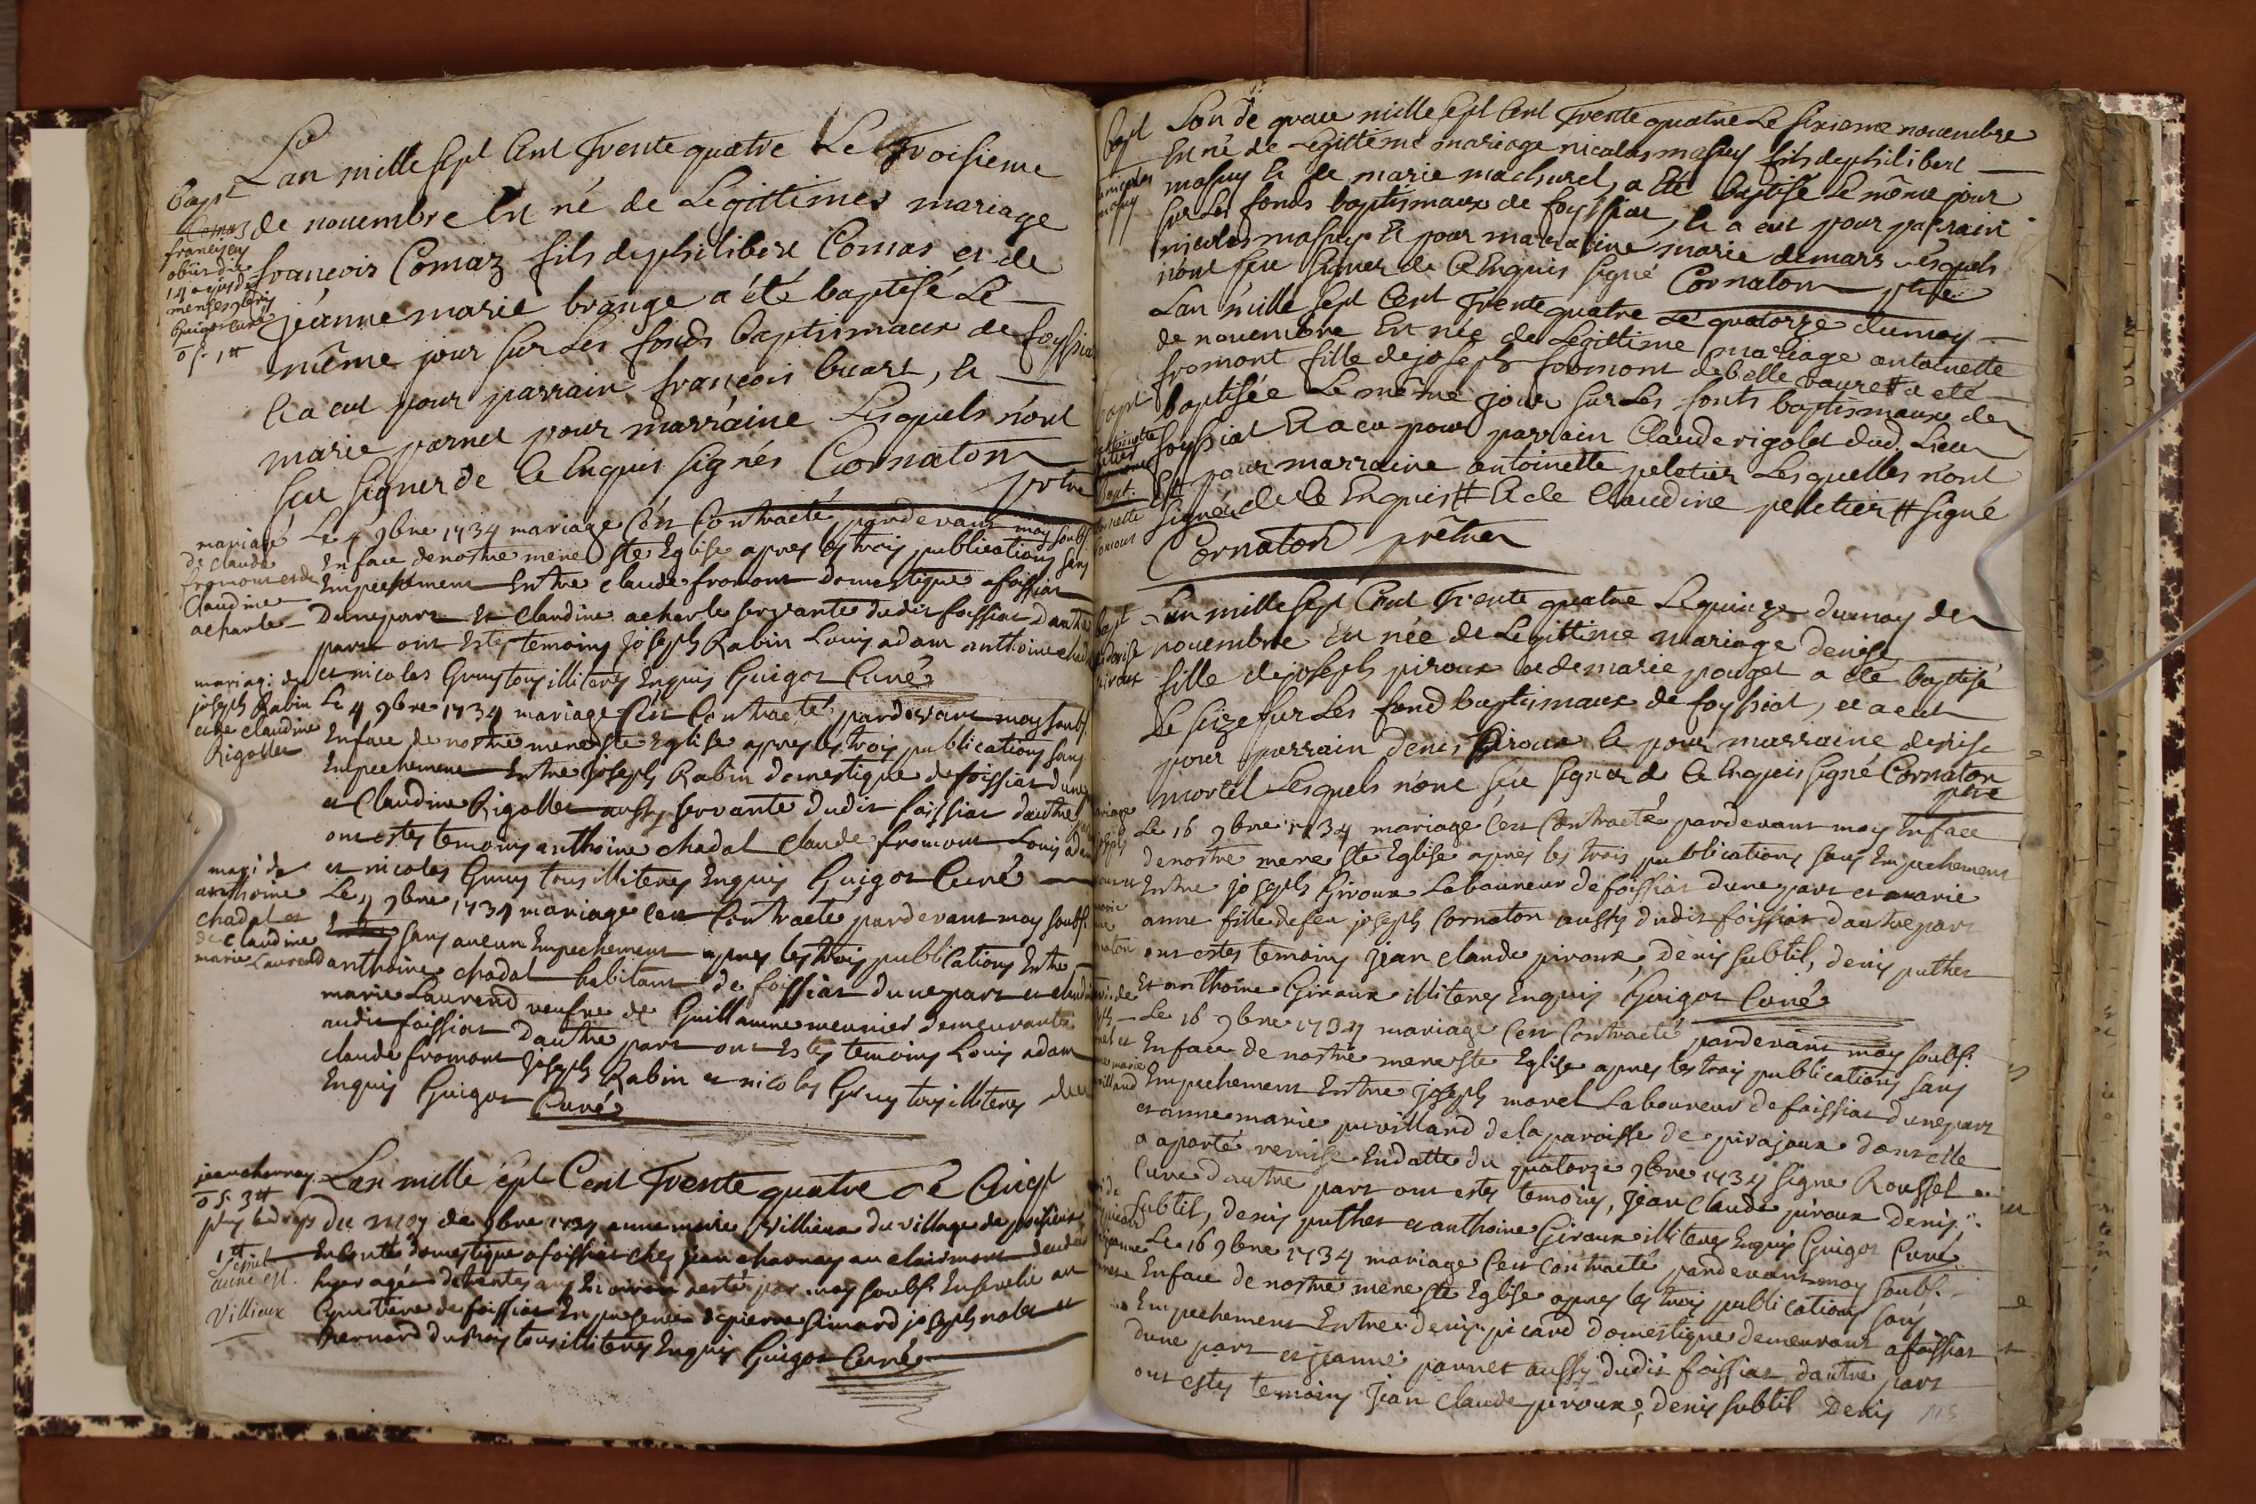 L'an mille sept Cent Trente quatre Le Troisieme
bapt
Comaz
de novembre Est né de Légittimes mariage
francisçus
françois Comaz fils de philibert Comas et de
obiit die
14 ejusdem
mensis
Guigot curé
jéanne marie brange a été baptisé Le
même jour sur Les fonds baptismaux de foyssiat
Et a eut pour parrain françois buart, Et
marie parnet pour marraine Lesquels n'ont
sceu signer de Ce Enquis signés Cornaton
prtre
mariage
de claude
fromont et de
Claudine
acharle
Le 4 9bre 1734 mariage C'est Contracté pardevant moy soubs.
En face de nostre mere Ste Eglise apres les trois publications sans
Empeschement Entre claude fromont domestique a foissiat
Dune part Et Claudine acharle servante dudit foissiat Dautre
part ont Estes temoins Joseph Rabin Louis adam anthoine chadal
et nicolas Gruy tous illiterés Enquis Guigot Curé
mariag: de
joseph Rabin
et de claudine
Rigollet
Le 4 9bre 1734 mariage C'est Contracté pardevant moy soubs.
Enface de nostre mere Ste Eglise apres les trois publications sans
Empechement Entre Joseph Rabin domestique de foissiat dune
et Claudine Rigollet aussy servante dudit foissiat dautre
ont estes temoins anthoine chadal Claude fromont Louis adam
et nicolas Gruy tous illiterés Enquis Guigot Curé
mari: de
anthoine
chadal et
de claudine
marie Laurend
Le 4 9bre 1734 mariage C'est Contracté pardevant moy soubs.
sans aucun Empechement apres les trois publications Entre
anthoine chadal habitant de foissiat dune part et claudine
marie Laurend veufve de Guillaume meunier demeurante
audit foissiat Dautre part ont Estes temoins Louis adam
claude fromont Joseph Rabin et nicolas Gruy tous illiterés
Enquis Guigot Curé
jean charnay
Lan mille sept Cent Trente quatre Le Cinqt
du moy de 9bre 1734 anne marie Villieux du village de
domestique a foissiat chez jean charnay au clairmont
anne
Villieux
hyer agée de trente ans Environ a esté par moy soubs. Ensevelie au
Cymetiere de foissiat En presence de pierre Simard joseph nolet et
bernard dubois tous illiterés Enquis Guigot Curé
bapt
L'an de grace mille sept Cent Trente quatre Le sixieme novembre
Est né de Legittime mariage nicolas massuy fils de philibert
massuy Et de marie machurel, a Eté baptisé Le même jour
sur Les fonds baptismaux de foyssiat, Et a eut pour parrain
nicolas massuy Et pour marraine marie demars Lesquels
n'ont sceu signer de Ce Enquis signé Cornaton ptre
L'an mille sept Cent Trente quatre Le quatorze du moy
de novembre Est née de Légittime mariage antoinette
fromont fille de joseph fromont de belle vavre# a eté
bapt
baptisée Le même jour sur Les fonts baptismaux de
foyssiat Et a eu pour parrain Claude rigolet dud. Lieu
Et pour marraine antoinette peletier Lesquelles n'ont
signés de Ce Enquis # Et de Claudine peletier # signé
Cornaton prêtre
bapt
L'an mille sept Cent Trente quatre Le quinze du moy de
novembre Est née de Legittime mariage denise
piroux
fille de joseph piroux et de marie pouget a été baptisé
Le seize sur Les fond baptismaux de foyssiat, et a eut
pour parrain denis piroux Et pour marraine denise
mortel Lesquels n'ont sceu signer de Ce Enquis signé Cornaton
ptre
Le 16 9bre 1734 mariage C'est Contracté pardevant moy En face
de nostre mere Ste Eglise apres les trois publications sans Empechement
Entre joseph Giroux Laboureur de foissiat dune part et marie
anne fille de feu joseph Cornaton aussy dudit foissiat dautre part
ont estes temoins jean claude piroux, denis subtil, denis puthet
Et anthoine Giroux illiterés Enquis Guigot Curé
Le 16 9bre 1734 mariage C'est Contracté pardevant moy soubs.
Enface de nostre mere Ste Eglise apres les trois publications sans
Empechement Entre joseph morel Laboureur de foissiat dune part
et anne marie puvilland de la paroisse de pirajoux dont elle
a aporté remise En datte du quatorze 9bre 1734 signe Roussel
Curé dautre part ont estes temoins, jean Claude piroux denis
subtil, denis puthet et anthoine Giroux illiterés Enquis Guigot Curé
Le 16 9bre 1734 mariage C'est contracté pardevant moy soubs.
Enface de nostre mere Ste Eglise apres les trois publications sans
Empechement Entre denis picard domestique demeurant a foissiat
dune part et jeanne parnet aussy dudit foissiat dautre part
ont estes temoins Jean Claude piroux, denis subtil Denis
115